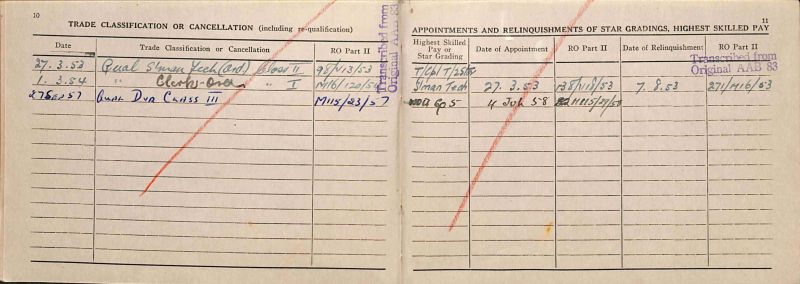 10
TRADE CLASSIFICATION OR CANCELLATION (including re-qualification)
Date Trade Classification or Cancellation RO Part II
27. 3.53 Qual S'man Tech (Ord) Class II 98/V13/53
1. 3.54 " Clerk-Ord " I M16/120/54
27 SEP 57 QUAL DVR CLASS III M115/23/57
Transcribed from
Original AAB 83
11
APPOINTMENTS AND RELINQUISHMENTS OF STAR GRADINGS, HIGHEST SKILLED PAY
Highest Skilled
Pay or
Star Grading
Date of Appointment RO Part II Date of Relinquishment RO Part II
Transcribed from
Original AAB 83
T/Cpl
S'man Tech 27. 3.53 7. 8.53 271/M16/53
Gp 5 4 JUL 58